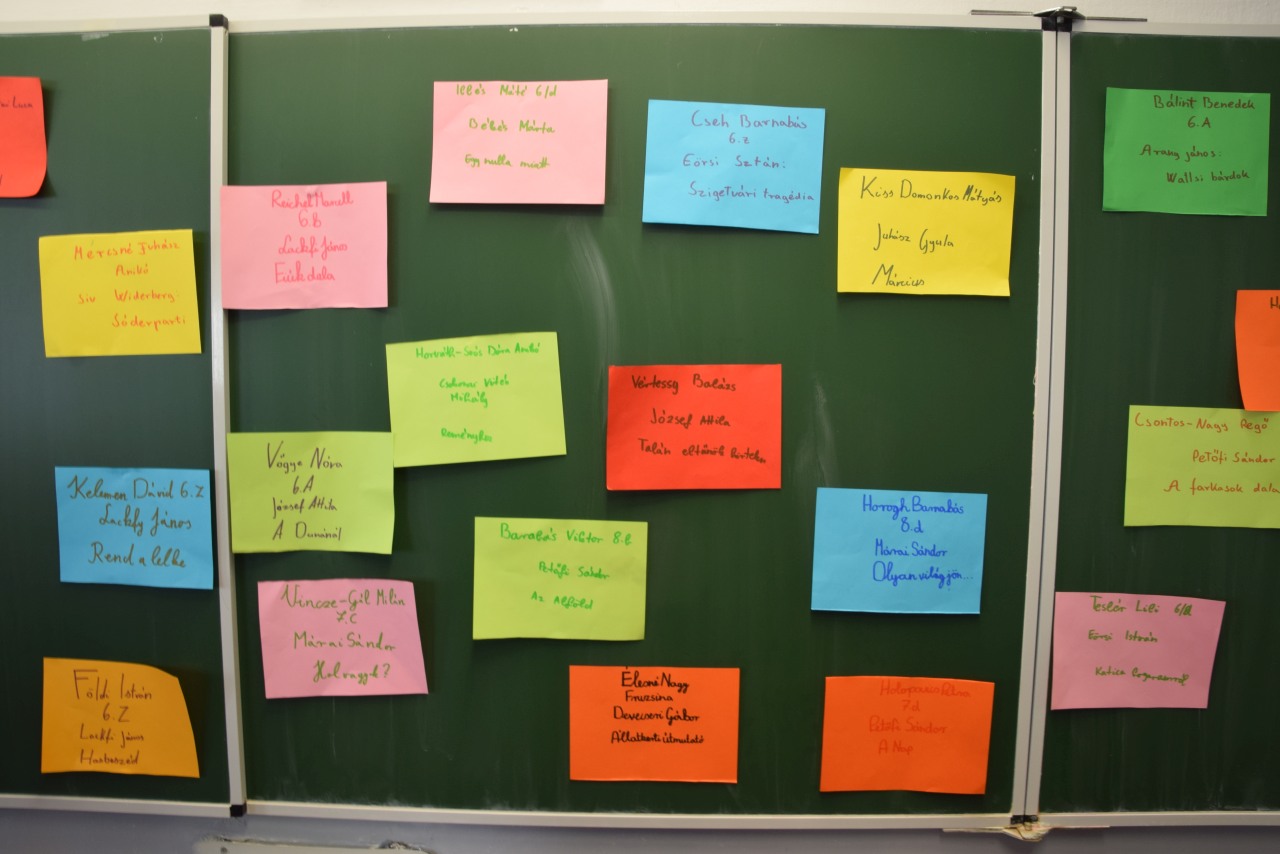 Luca
Mércsné Juhász
Anikó
Siv Widerberg:
Sóderparti
Kelemen Dávid 6.Z
Lackfy János
Rend a lelke
Földi István
6.Z
Lackfi János
Hasbeszéd
Reichel Manull
6.B
Lackfi János
Fiúk dala
Illés Máté 6/d
Békés Márta
Egy nulla miatt
Cseh Barnabás
6.z
Eörsi Sztán:
Szigetvári tragédia
Kiss Domonkos Mátyás
Juhász Gyula
Március
Horváth-Soós Dóra Anikó
Csokonai Vitéz
Mihály
Reményhez
Vértessy Balázs
József Attila
Talán eltűnök hirtelen
Vógye Nóra
6.A
József Attila
A Dunánál
Barabás Viktor 8.b
Petőfi Sándor
Az Alföld
Horogh Barnabás
8.d
Márai Sándor
Olyan világ jön...
Vincze-Gál Milán
7.C
Márai Sándor
Hol vagyok?
Élesné Nagy
Fruzsina
Devecseri Gábor
Állatkerti útmutató
7d
Petőfi Sándor
A Nap
Bálint Benedek
6.A
Arany János:
Walesi bárdok
Csontos-Nagy Regő
Petőfi Sándor
A farkasok dala
Teslér Lili
Eörsi István
Katica